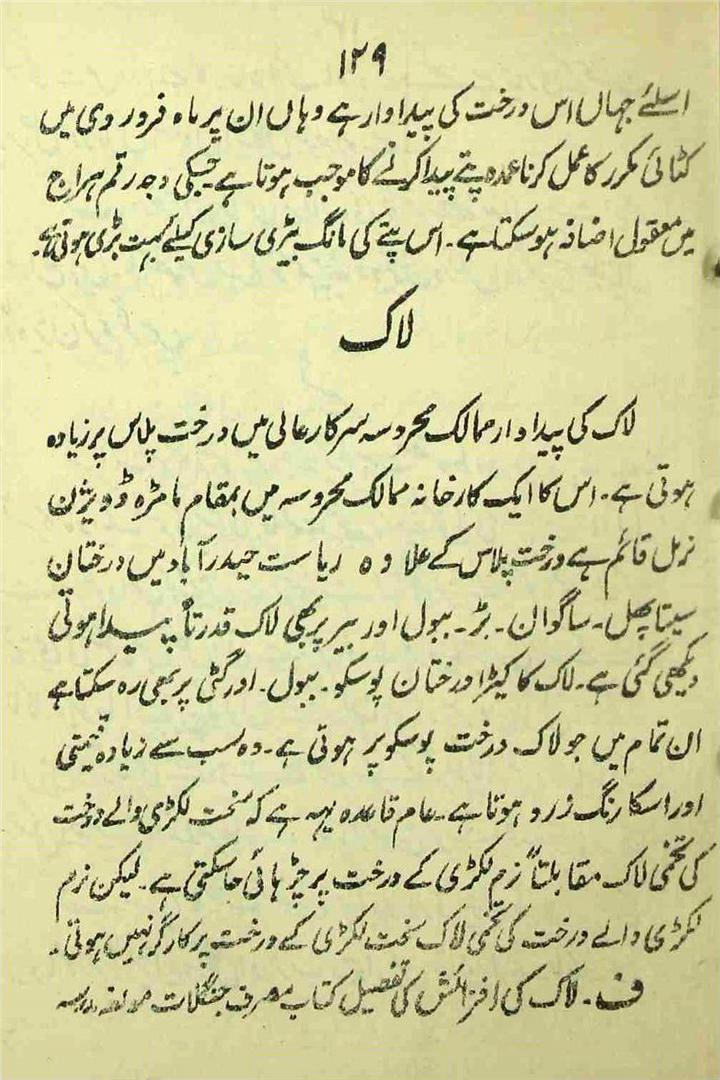 ۱۲۹
اسلئے جہاں اس درخت کی پیداوار ہے وہاں ان پر ماہ فروردی میں
کٹائی مکرر کا عمل کرنا عمدہ پتے پیدا کرنے کا موجب ہوتا ہے۔ جسکی وجہ رقم ہراج
میں معقول اضافہ ہوسکتا ہے۔ اس پتے کی مانگ بیڑی سازی کیلئے بہت بڑی ہوتی ہے۔
لاک
لاک کی پیداوار ممالک محروسہ سرکار عالی میں درخت پلاس پر زیادہ
ہوتی ہے۔ اس کا ایک کارخانہ ممالک محروسہ میں بمقام مامڑہ ڈویژن
نرمل قائم ہے درخت پلاس کے علاوہ ریاست حیدرآباد میں درختان
سیتا پھل۔ ساگوان۔ بڑ۔ ببول اور بیر پر بھی لاک قدرتاً پیدا ہوتی
دیکھی گئی ہے۔ لاک کا کیڑا درختان پوسکو۔ ببول۔ اور گٹی پر بھی رہ سکتا ہے
ان تمام میں جو لاک درخت پوسکو پر ہوتی ہے۔ وہ سب سے زیادہ قیمتی
اور اسکا رنگ زرد ہوتا ہے۔ عام قاعدہ یہہ ہے کہ سخت لکڑی والے درخت
کی تخمی لاک مقابلتاً نرم لکڑی کے درخت پر چڑہائی جاسکتی ہے۔ لیکن نرم
لکڑی والے درخت کی تخمی لاک سخت لکڑی کے درخت پر کارگر نہیں ہوتی۔
ف۔ لاک کی افزائش کی تفصیل کتاب مصرف جنگلات مولفہ مدرسہ